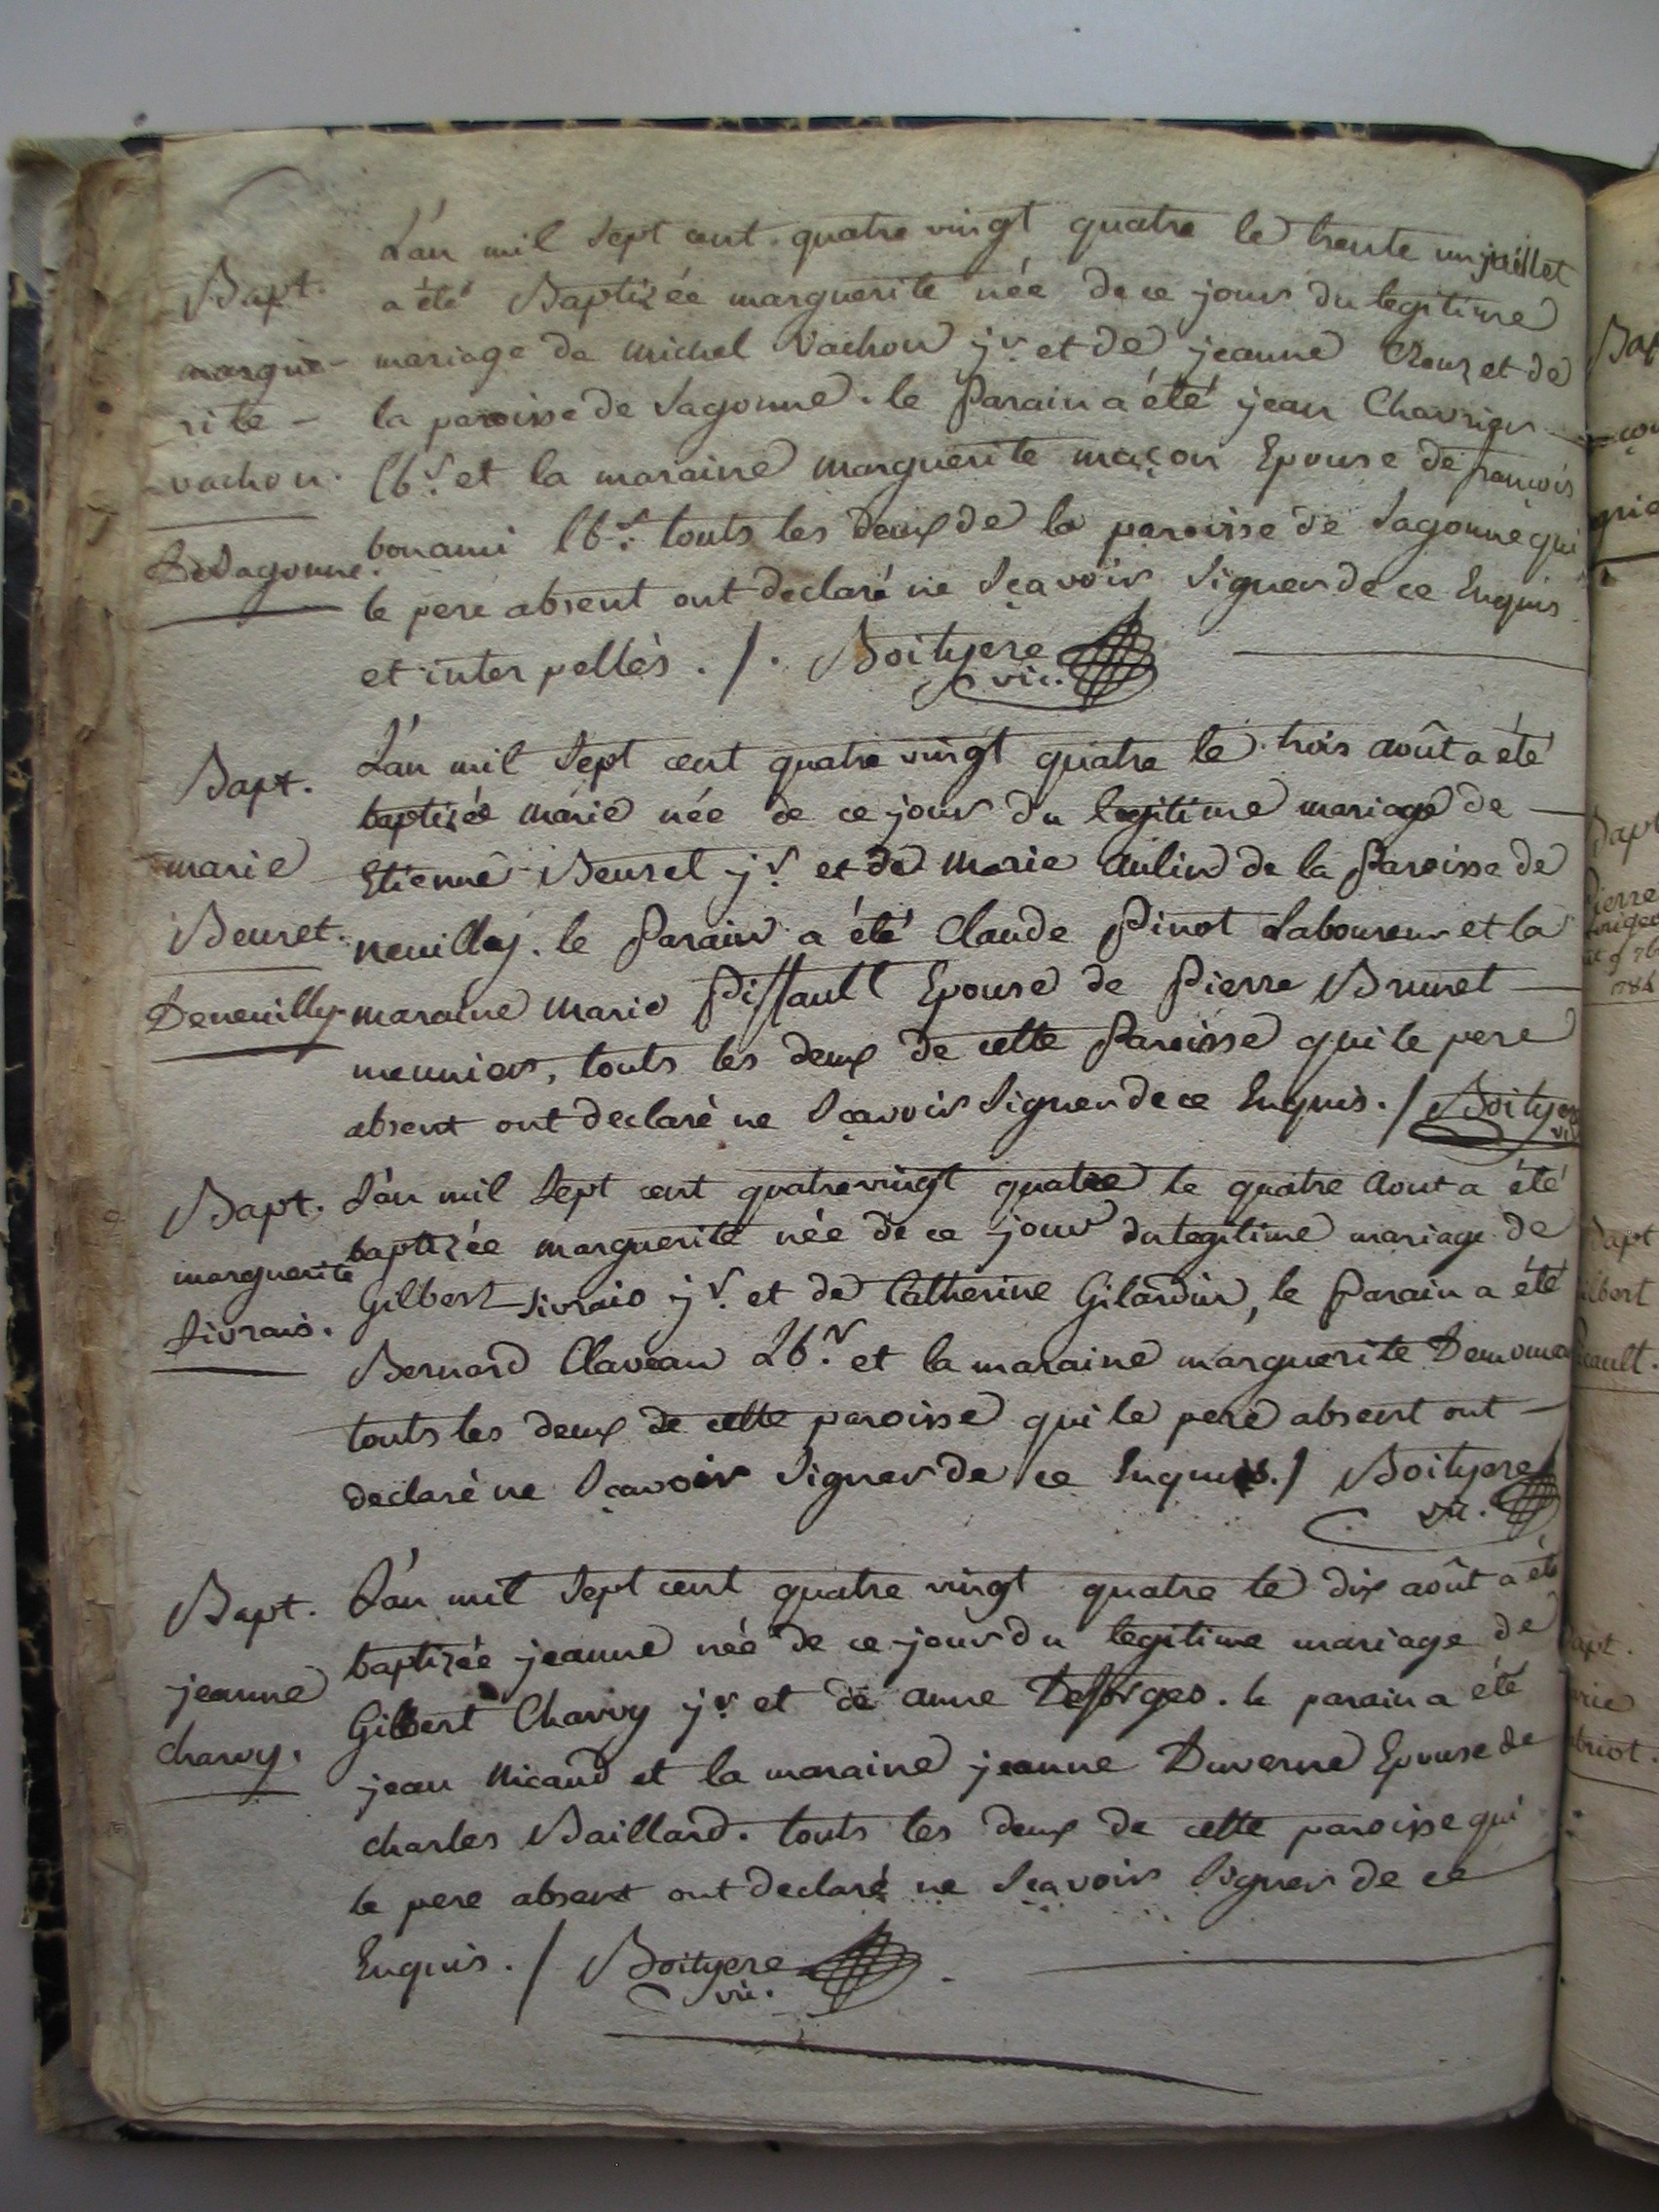 L'an mil sept cent quatre vingt quatre le trente un juillet
Bapt.
a été Baptizée marguerite née de ce jour du legitime
margue-
mariage de michel Vachon jr. et de jeanne et de
rite -
la paroisse de Sagonne. le Parain a été jean Chavrier
vachon.
lbr. et la maraine marguerite maçon Epouse de françois
De Sagonne.
bonami lbr. touts les deux de la paroisse de Sagonne qui
le pere absent ont declaré ne Sçavoir Signer de ce Enquis
et interpellés. /. Boityere
vic.
L'an mil Sept cent quatre vingt quatre le trois août a été
Bapt.
baptizée marie née de ce jour du legitime mariage de
marie
Etienne Beuret jr. et de marie Aulin de la Paroisse de
Beuret.
neuilly. le Parain a été Claude Pinot Laboureur et la
Deneuilly.
maraine marie Piffault Epouse de Pierre Brunet
meunier, touts les deux de cette Paroisse qui le pere
absent ont declaré ne Sçavoir Signer de ce Enquis. / Boityere
vic
Bapt.
L'an mil Sept cent quatre vingt quatre le quatre Aout a été
baptizée marguerite née de ce jour du legitime mariage de
marguerite
Gilbert Livrais jr. et de Catherine Gilardin, le Parain a été
Livrais.
Bernard Claveau Lbr. et la maraine marguerite
touts les deux de cette paroisse qui le pere absent ont
declaré ne Sçavoir Signer de ce Enquis. / Boityere
vic.
Bapt.
L'an mil Sept cent quatre vingt quatre le dix août a été
baptizée jeanne née de ce jour du legitime mariage de
jeanne
Gilbert Charvy jr. et de anne Desforges. le parain a été
charvy.
jean Micaud et la maraine jeanne Duverne Epouse de
charles Baillard. touts les deux de cette paroisse qui
le pere absent ont declaré ne Sçavoir Signer de ce
Enquis. / Boityere
vic.